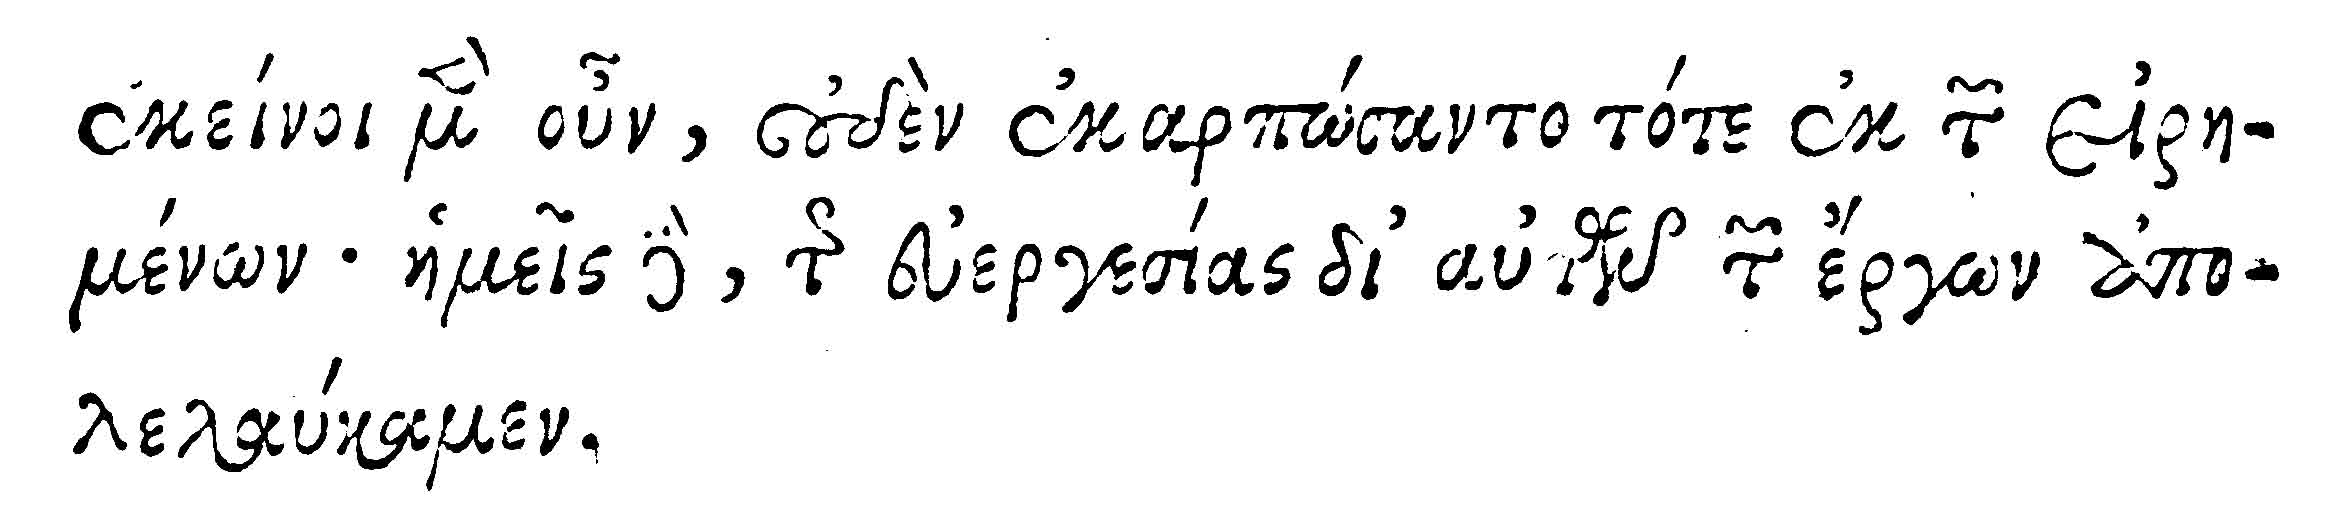 ἐκείνοι μὲν οὖν, οὐδὲν ἐκαρπώσαντο τότε ἐκ τῶν εἰρη-
μένων · ἡμεῖς δὲ, τῆς εὐεργεσίας δι' τῶν ἔργων ἀπο-
λελαύκαμεν.